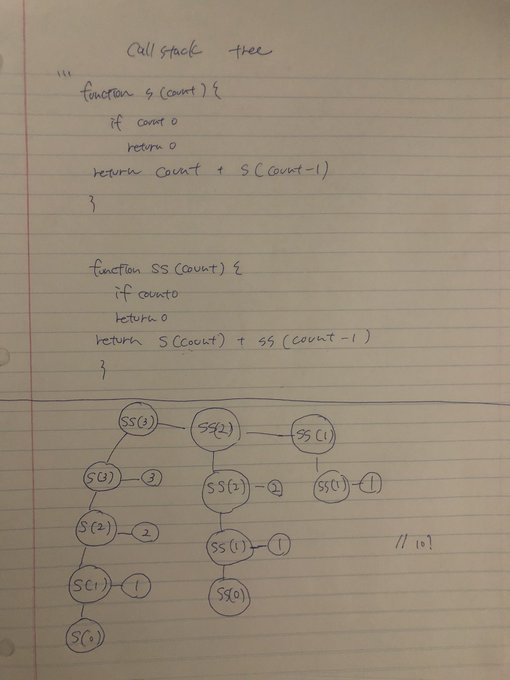 Call stack tree
'''
function s(count) {
if count 0
return 0
return count + S(count-1)
}
function SS(count) {
if count 0
return 0
return S(count) + SS(count-1)
}
SS(3) SS(2) SS(1)
S(3) 3 SS(2) 2 SS(1) 1
S(2) 2 SS(1) 1 // 10?
S(1) 1 SS(0)
S(0)